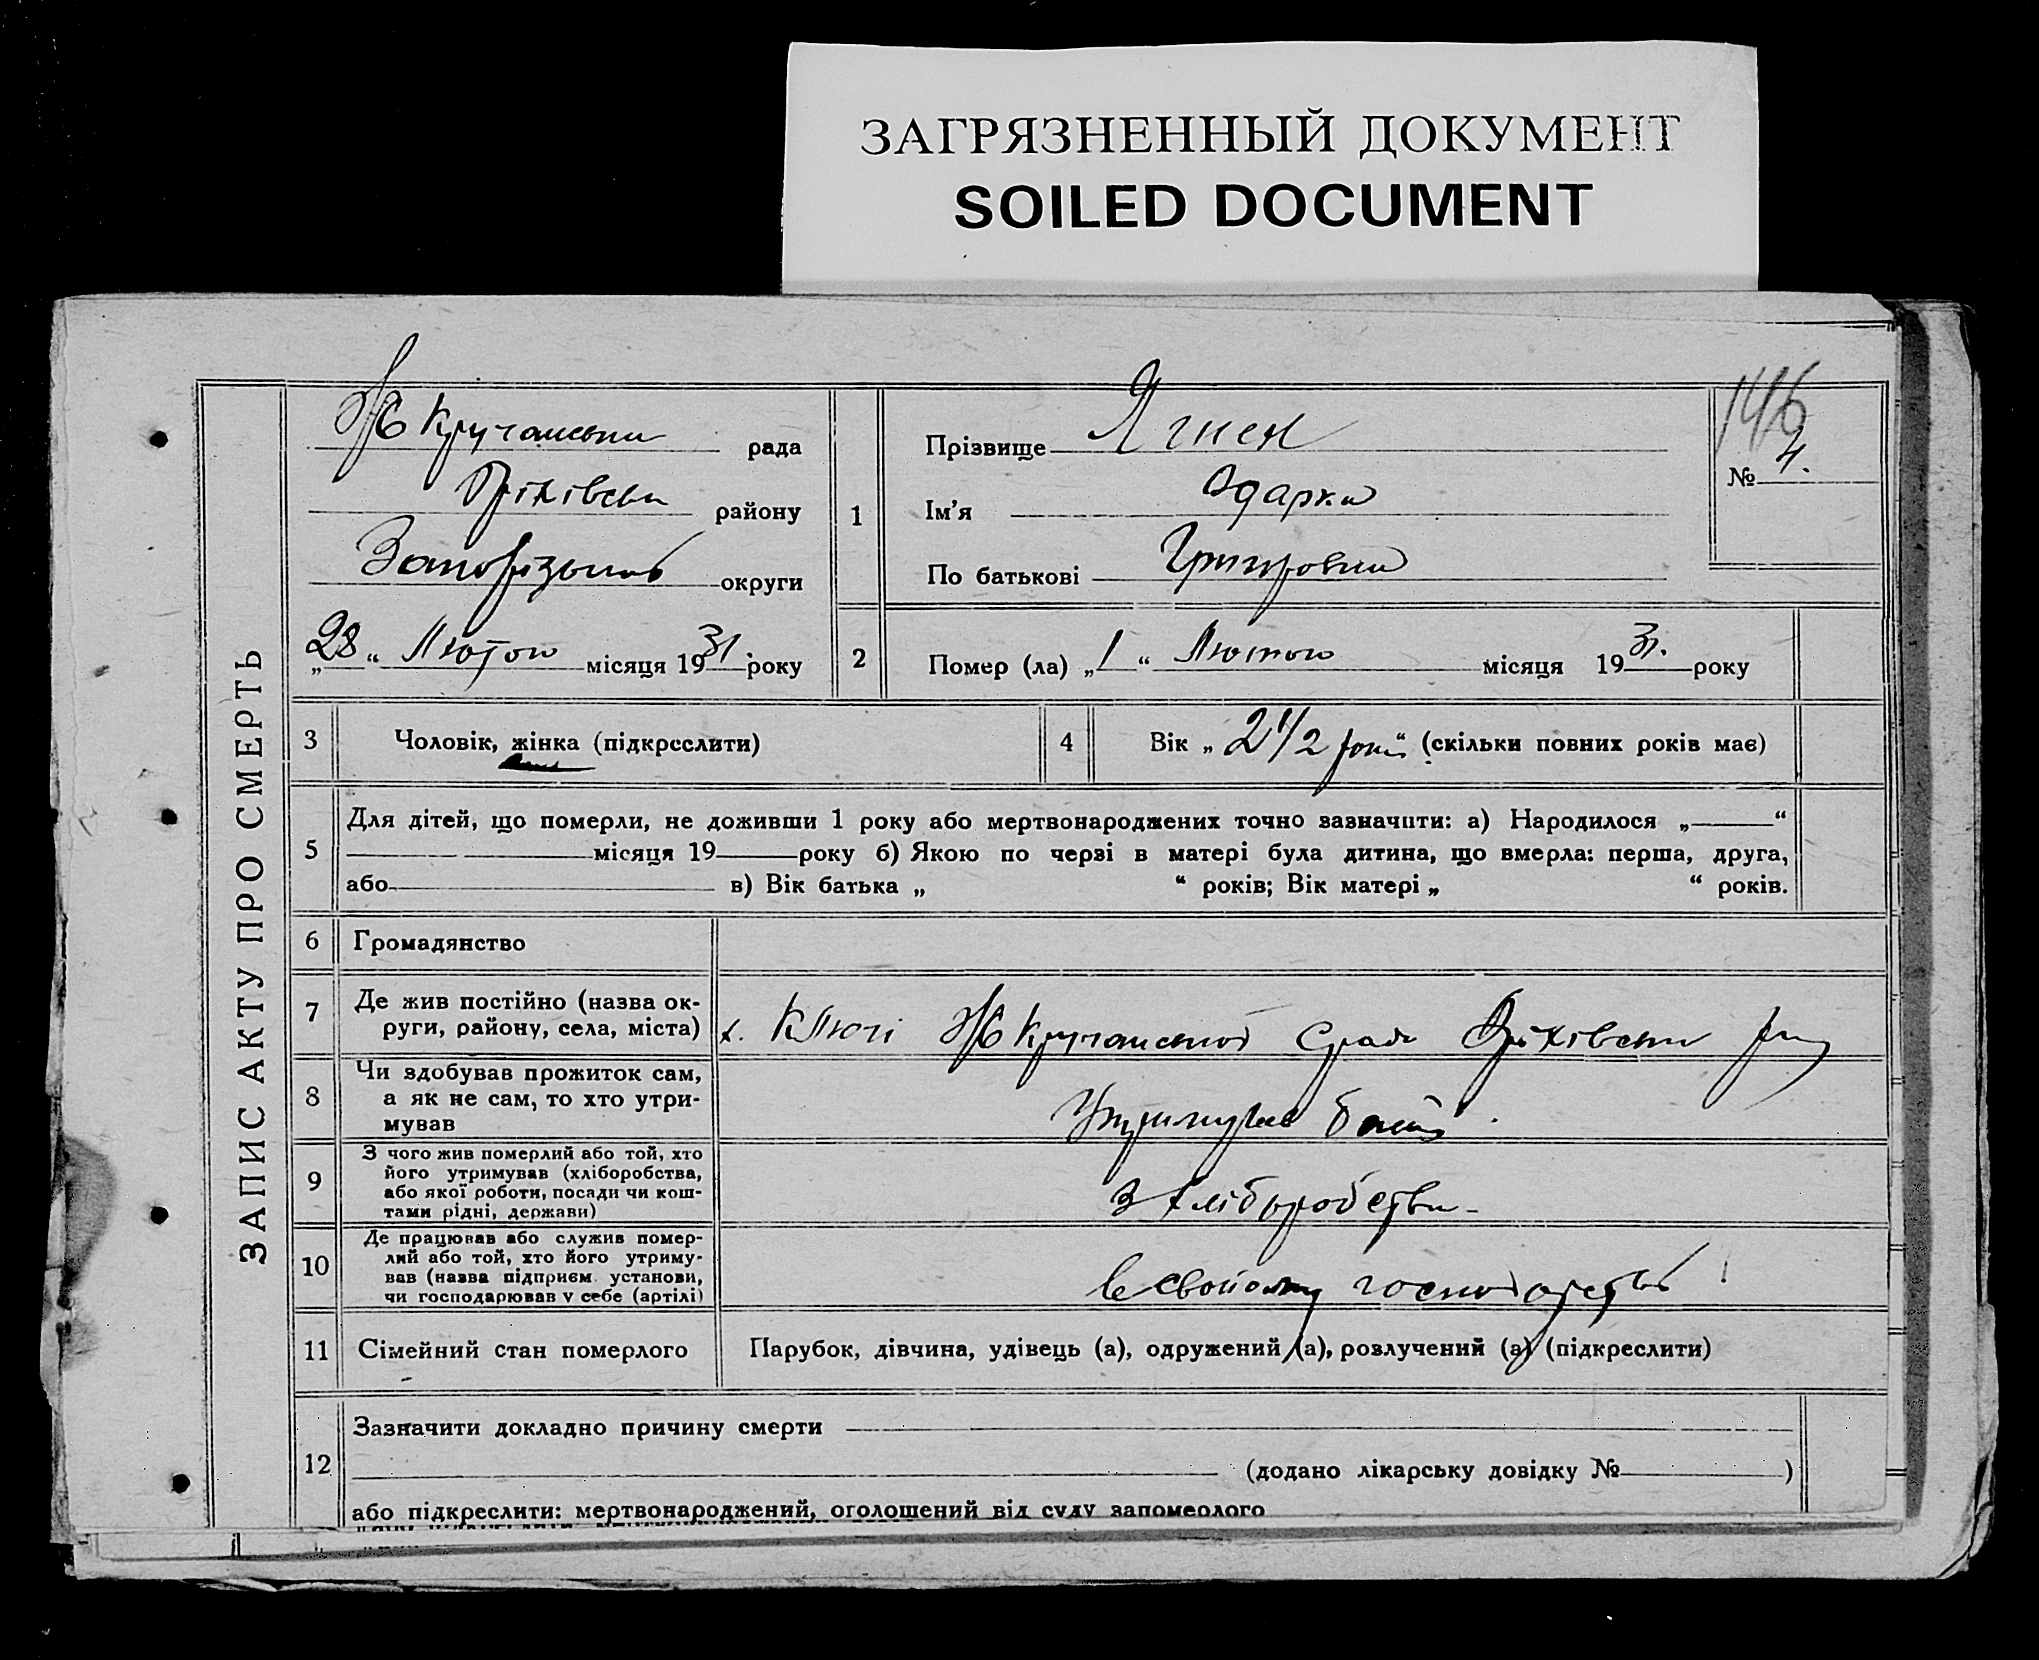 ЗАГРЯЗНЕННЫЙ ДОКУМЕНТ
SOILED DOCUMENT
ЗАПИС АКТУ ПРО СМЕРТЬ
рада
Оріхівськ району
Запорізької округи
„28“ Лютого місяця 1931. року
146
№ 4.
1 Прізвище Ягнен
Ім’я Одарка
По батькові Григоровна
2 Помер (ла) „1“ Лютого місяця 1931. року
3 Чоловік, жінка (підкреслити)
4 Вік „2 1/2 роки“ (скільки повних років має)
5 Для дітей, що померли, не доживши 1 року або мертвонароджених точно зазначити: а) Народилося „ “
місяця 19 року б) Якою по черзі в матері була дитина, що вмерла: перша, друга,
або в) Вік батька „ “ років; Вік матері „ “ років.
6 Громадянство
7 Де жив постійно (назва ок-
руги, району, села, міста) х. Ключі Сради Оріхівськ
8 Чи здобував прожиток сам,
а як не сам, то хто утри-
мував Утримував батько
9 З чого жив померлий або той, хто
його утримував (хліборобства,
або якої роботи, посади чи кош-
тами рідні, держави) З хліборобства
10 Де працював або служив помер-
лий або той, хто його утриму-
вав (назва підприєм. установи,
чи господарював у себе (артілі) в свойому господарстві
11 Сімейний стан померлого Парубок, дівчина, удівець (а), одружений (а), розлучений (а) (підкреслити)
12 Зазначити докладно причину смерти
(додано лікарську довідку № )
або підкреслити: мертвонароджений, оголошений від суду запомерлого